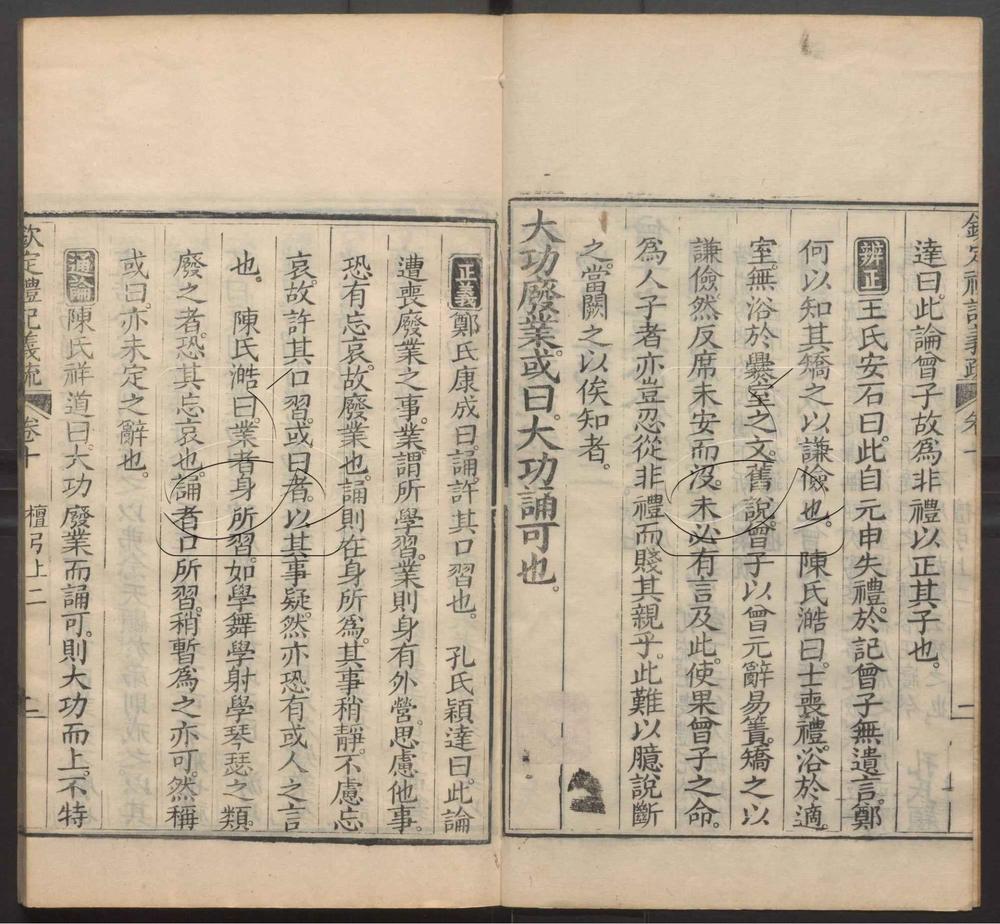 達曰。此論曾子故為非禮以正其子也。
辨正 王氏安石曰。此自元申失禮。於記曾子無遺言。鄭
何以知其矯之以謙儉也。 陳氏澔曰。士喪禮。浴於適
室。無浴於爨室之文。舊說。曾子以曾元辭易簀。矯之以
謙儉。然反席未安而沒。未必有言及此。使果曾子之命。
為人子者亦豈忍從非禮而賤其親乎。此難以臆說斷
之。當闕之以俟知者。
大功廢業。或曰。大功誦可也。
正義 鄭氏康成曰。誦。許其口習也。 孔氏穎達曰。此論
遭喪廢業之事。業。謂所學習。業則身有外營。思慮他事。
恐有忘哀。故廢業也。誦則在身所為。其事稍靜。不慮忘
哀。故許其口習。或曰者。以其事疑。然亦恐有或人之言
也。 陳氏澔曰。業者身所習。如學舞學射學琴瑟之類。
廢之者。恐其忘哀也。誦者口所習。稍暫為之亦可。然稱
或曰。亦未定之辭也。
通論 陳氏祥道曰。大功廢業而誦可。則大功而上。不特
欽定禮記義疏 卷十 檀弓上二 二